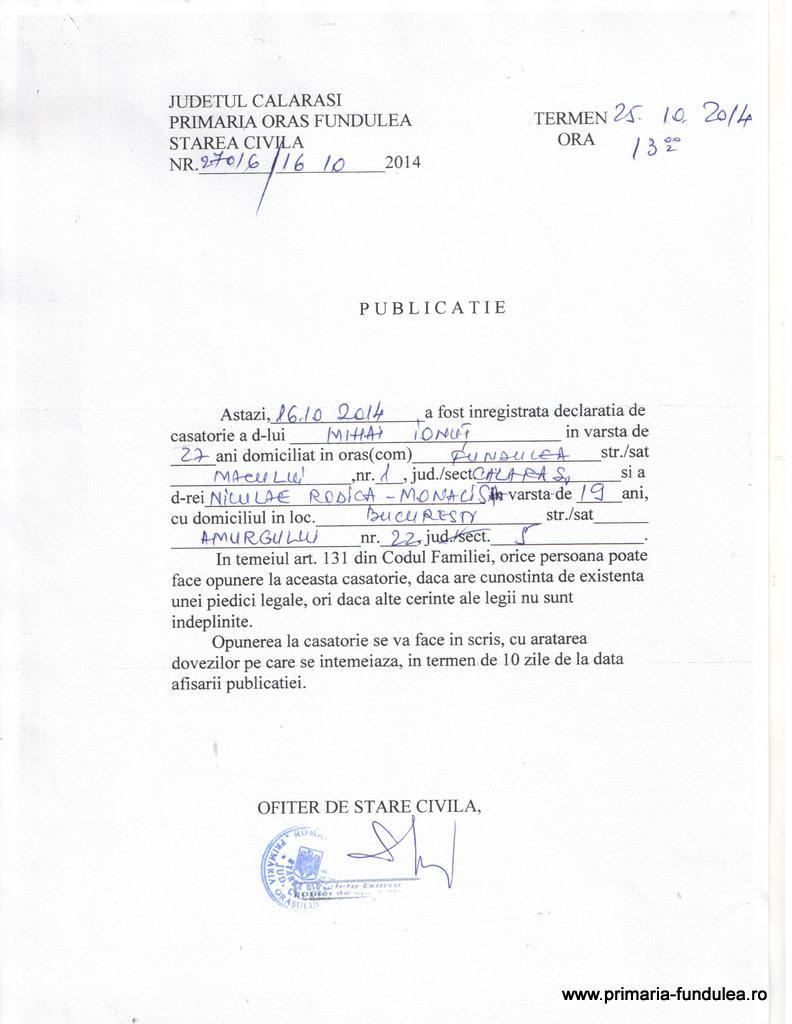 JUDETUL CALARASI
PRIMARIA ORAS FUNDULEA
STAREA CIVILA
NR. 27016/16 10 2014
TERMEN 25. 10. 2014
ORA 13 00
PUBLICATIE
Astazi, 16.10 2014 ,a fost inregistrata declaratia de
casatorie a d-lui MIHAI IONUȚ in varsta de
27 ani domiciliat in oras(com) FUNDULEA str./sat
MACULUI ,nr. 1 , jud./sect CALARASI si a
d-rei NICULAE RODICA - MONALISA in varsta de 19 ani,
cu domiciliul in loc. BUCURESTI str./sat
AMURGULUI nr. 22, jud./sect. 5 .
In temeiul art. 131 din Codul Familiei, orice persoana poate
face opunere la aceasta casatorie, daca are cunostinta de existenta
unei piedici legale, ori daca alte cerinte ale legii nu sunt
indeplinite.
Opunerea la casatorie se va face in scris, cu aratarea
dovezilor pe care se intemeiaza, in termen de 10 zile de la data
afisarii publicatiei.
OFITER DE STARE CIVILA,
PRIMARIA ORASULUI
www.primaria-fundulea.ro